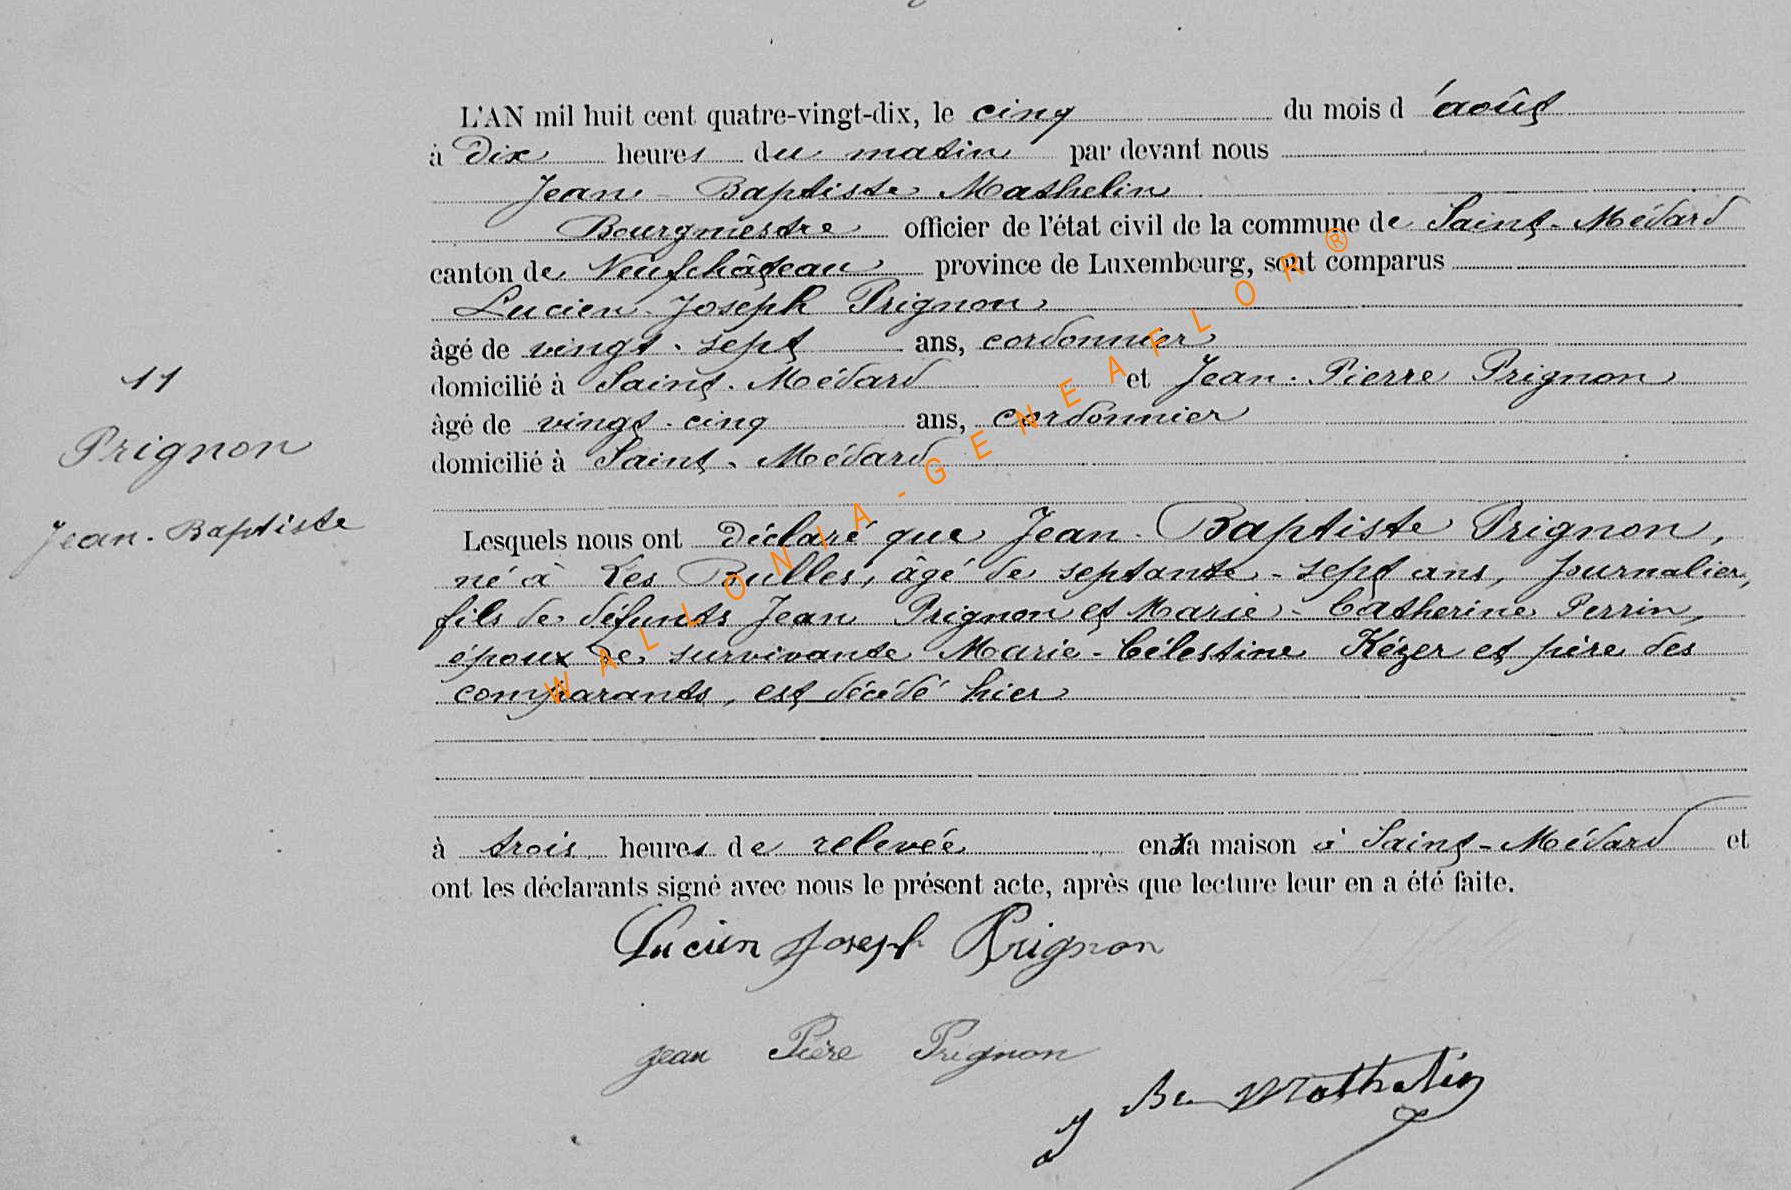 L'AN mil huit cent quatre-vingt-dix, le cinq du mois d'août
à dix heures du matin par devant nous
Jean-Baptiste Mathelin
Bourgmestre officier de l'état civil de la commune de Saint-Médard
canton de Neufchâteau province de Luxembourg, sont comparus
Lucien-Joseph Prignon
âgé de vingt-sept ans, cordonnier
domicilié à Saint-Médard et Jean-Pierre Prignon
âgé de vingt-cinq ans, cordonnier
domicilié à Saint-Médard
11
Prignon
Jean-Baptiste
Lesquels nous ont déclaré que Jean-Baptiste Prignon,
né à Les Bulles, âgé de septante-sept ans, journalier,
fils de défunts Jean Prignon et Marie-Catherine Perrin,
époux de survivante Marie-Célestine Kézer et père des
comparants, est décédé hier
à trois heures de relevée en sa maison à Saint-Médard et
ont les déclarants signé avec nous le présent acte, après que lecture leur en a été faite.
Lucien Joseph Prignon
jean Pière Prignon
J Bte Mathelin
WALLONIA-GENEAFLOR®